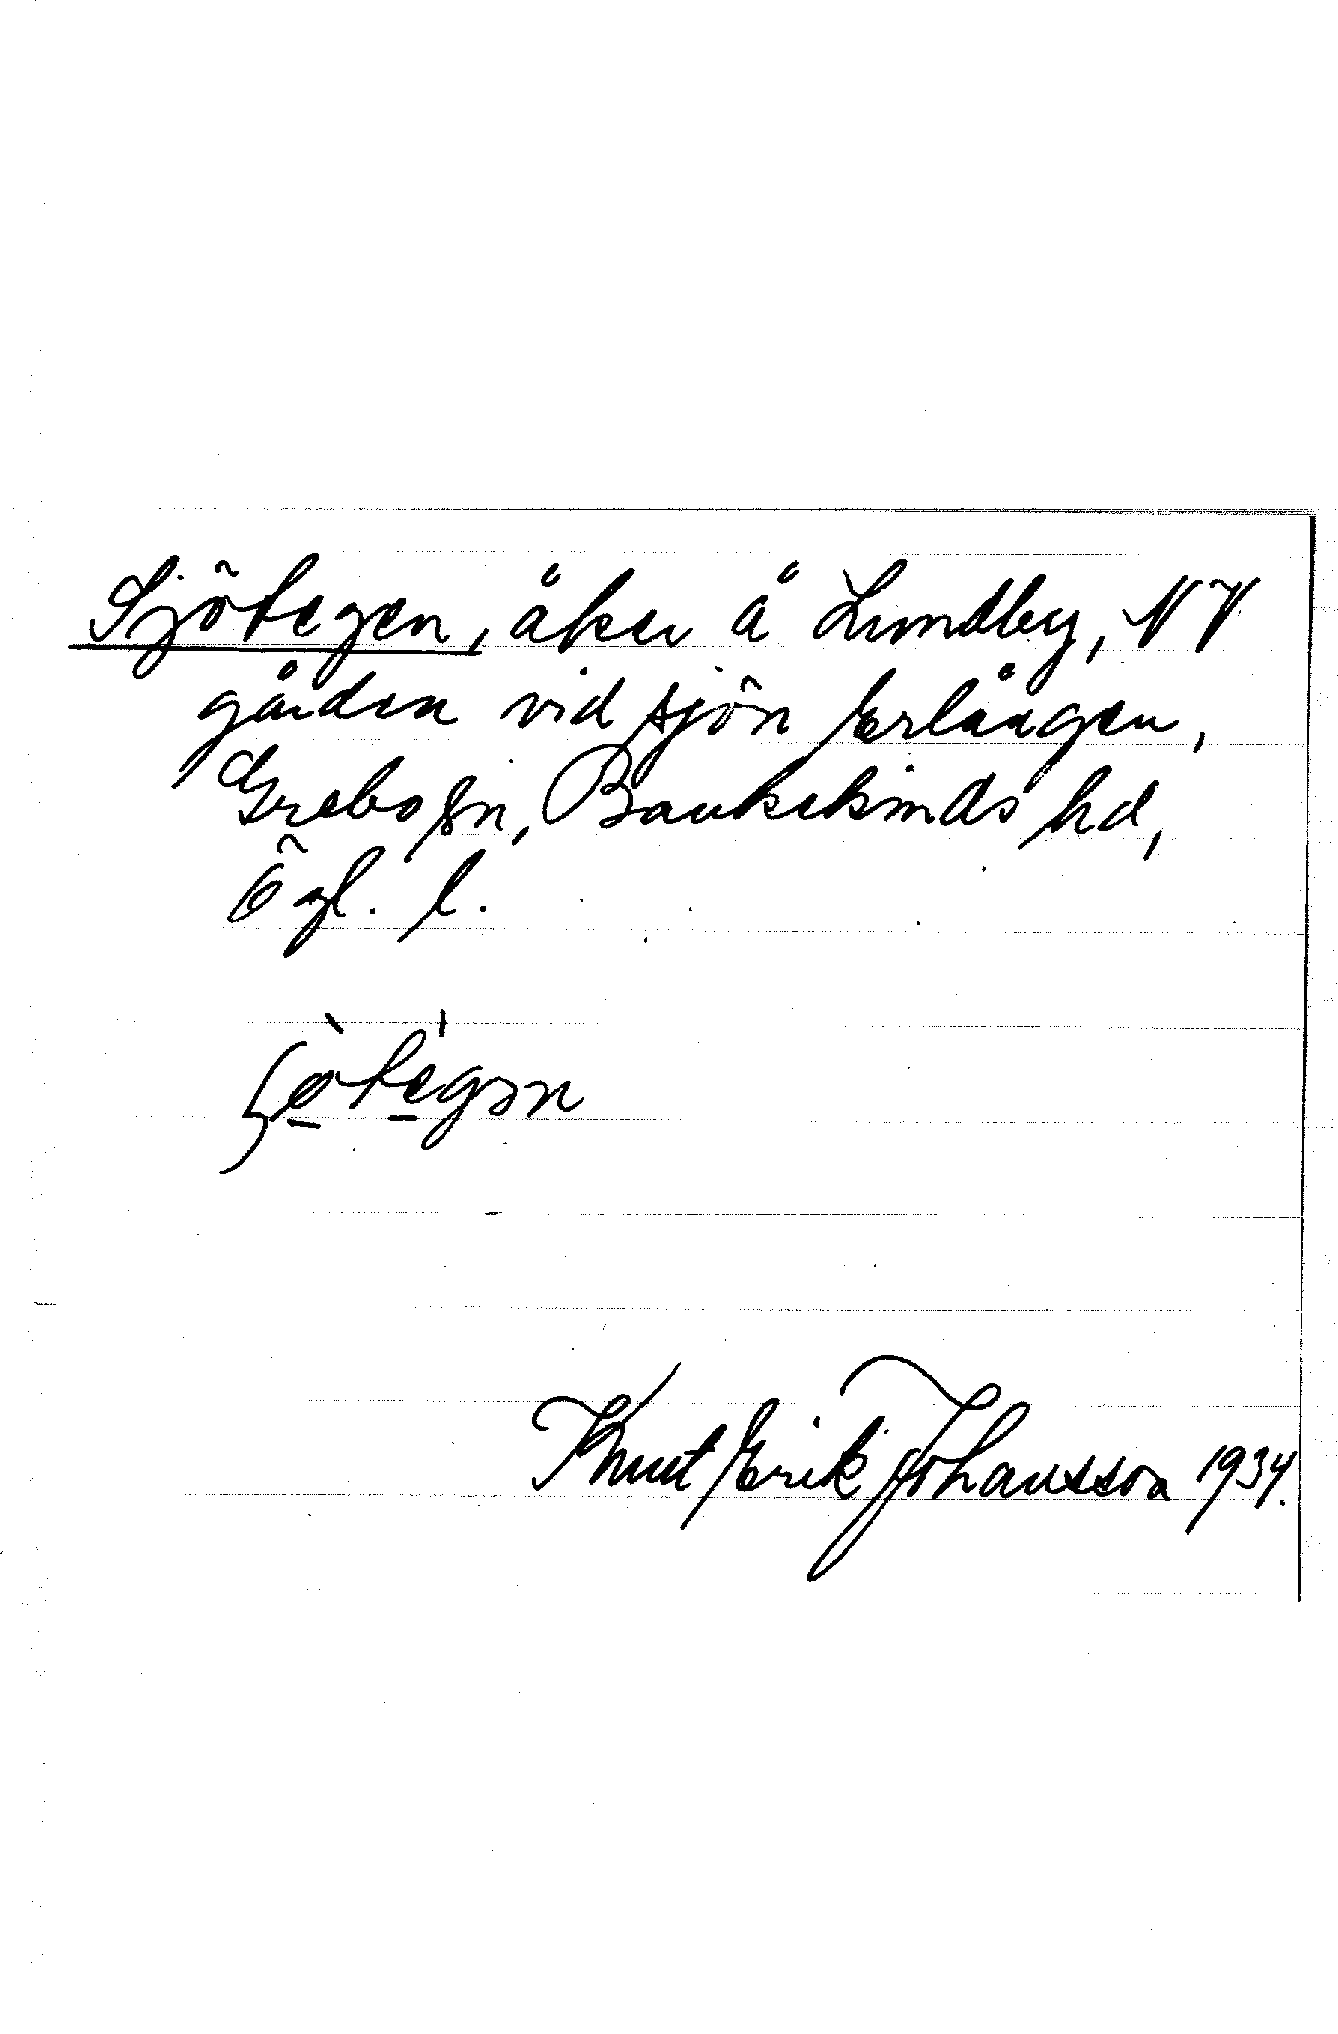 Sjötegen, åker å Lundby, NV
gården vid sjön Erlången,
Grebo sn, Bankekinds hd,
Ögl. l.
ʃø̀teˈgən
Knut Erik Johansson 1934.